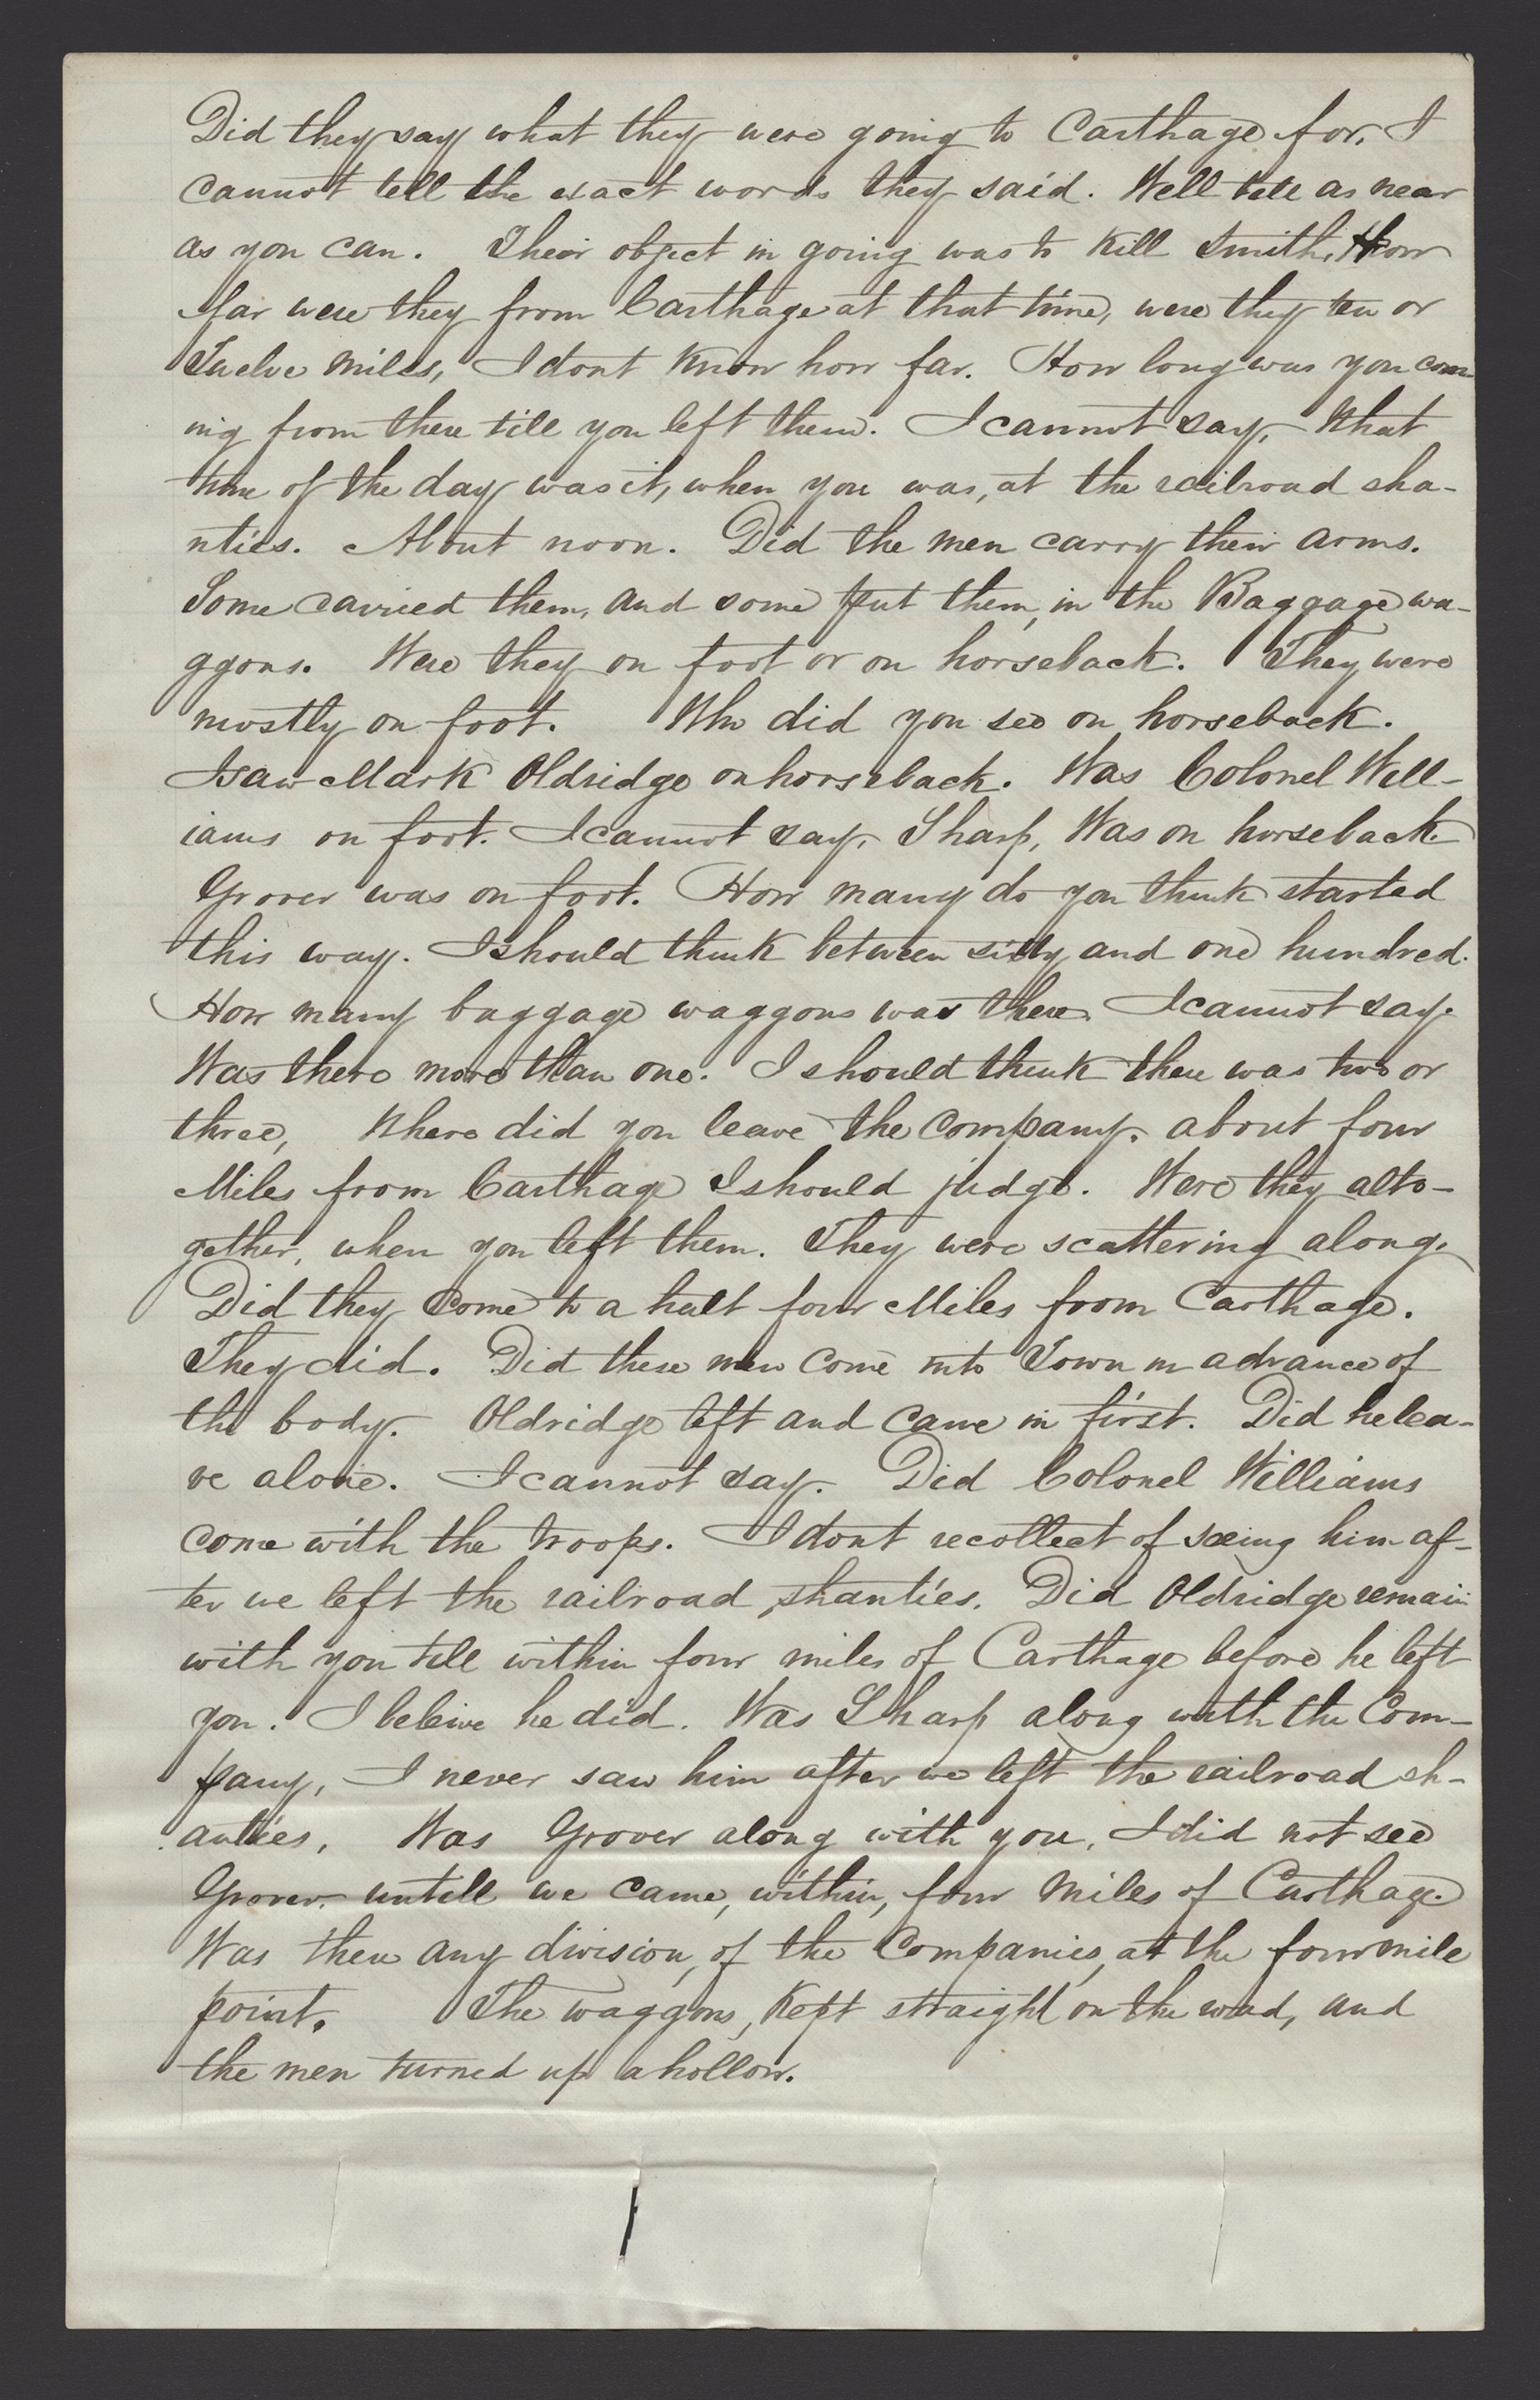 Did they say what they were going to Carthage for. I
cannot tell the exact words they said. Well tell as near
as you can. Their object in going was to Kill Smith, How
far were they from Carthage at that time, were they ten or
Twelve miles, I dont Know how far. How long was you com-
ing from there till you left them. I cannot say. What
time of the day was it, when you was, at the railroad sha-
nties. About noon. Did the men carry their arms.
Some carried them, and some put them, in the Baggage wa-
ggons. Were they on foot or on horseback. They were
mostly on foot. Who did you see on horseback.
I saw Mark Oldridge on horseback. Was Colonel Will-
iams on foot. I cannot say. Sharp, Was on horseback.
Grover was on foot. How many do you think started
this way. I should think between sixty and one hundred.
How many baggage waggons was there. I cannot say.
Was there more than one. I should think there was two or
three, Where did you leave the company. about four
Miles from Carthage I should judge. Were they alto-
gether, when you left them. They were scattering along.
Did they Come to a halt four Miles from Carthage.
They did. Did these men Come into Town in advance of
the body. Oldridge left and came in first. Did he lea-
ve alone. I cannot say. Did Colonel Williams
come with the troops. I dont recollect of seeing him af-
ter we left the railroad shanties. Did Oldridge remain
with you till within four miles of Carthage before he left
you. I beleive he did. Was Sharp along with the Com-
pany, I never saw him after we left the railroad sh-
anties, Was Grover along with you, I did not see
Grover untill we came, within, four Miles of Carthage.
Was there any division, of the Companies, at the four mile
point. The waggons, Kept straight on the road, and
the men turned up a hollow.